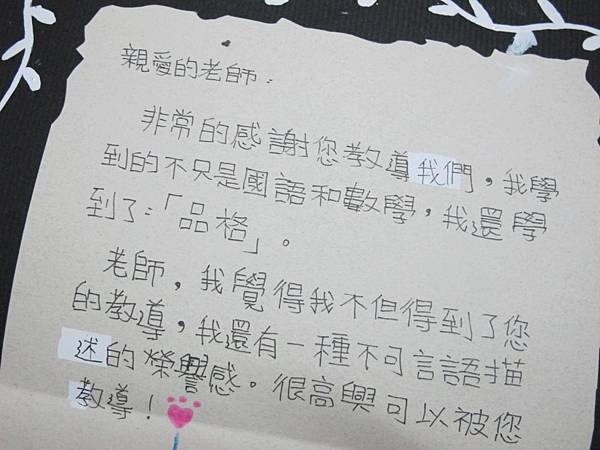 親愛的老師：
非常的感謝您教導我們，我學
到的不只是國語和數學，我還學
到了：「品格」。
老師，我覺得我不但得到了您
的教導，我還有一種不可言語描
述的榮譽感。很高興可以被您
教導！